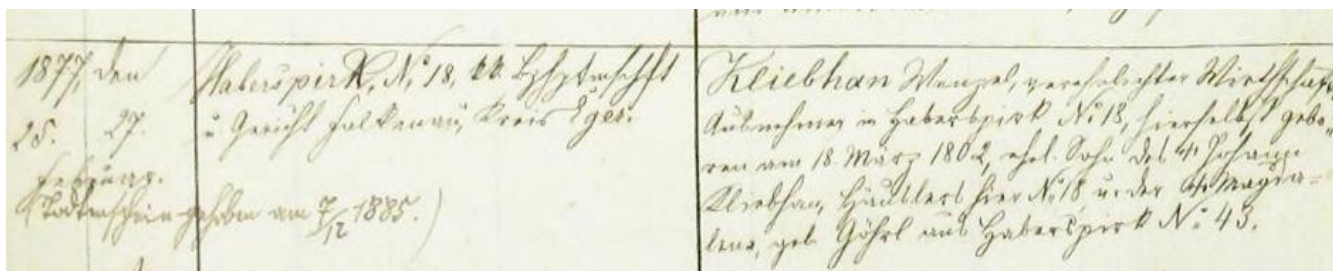 1877, den
25. 27.
Februar.
(Todtenschein gehoben am 7/12 1885.)
Haberspirk, N° 18, kk. Bzhptmschft
u Gericht Falkenau, Kreis Eger.
Kliebhan Wenzel, verehelichter Wirthschafts
Ausnehmer in Haberspirk N° 18, hierselbst gebo-
ren am 18. März 1802, ehel. Sohn des † Johann
Kliebhan, Häuslers hier N° 18 u. der † Magda=
lena, geb. Göhrl aus Haberspirk N° 43.